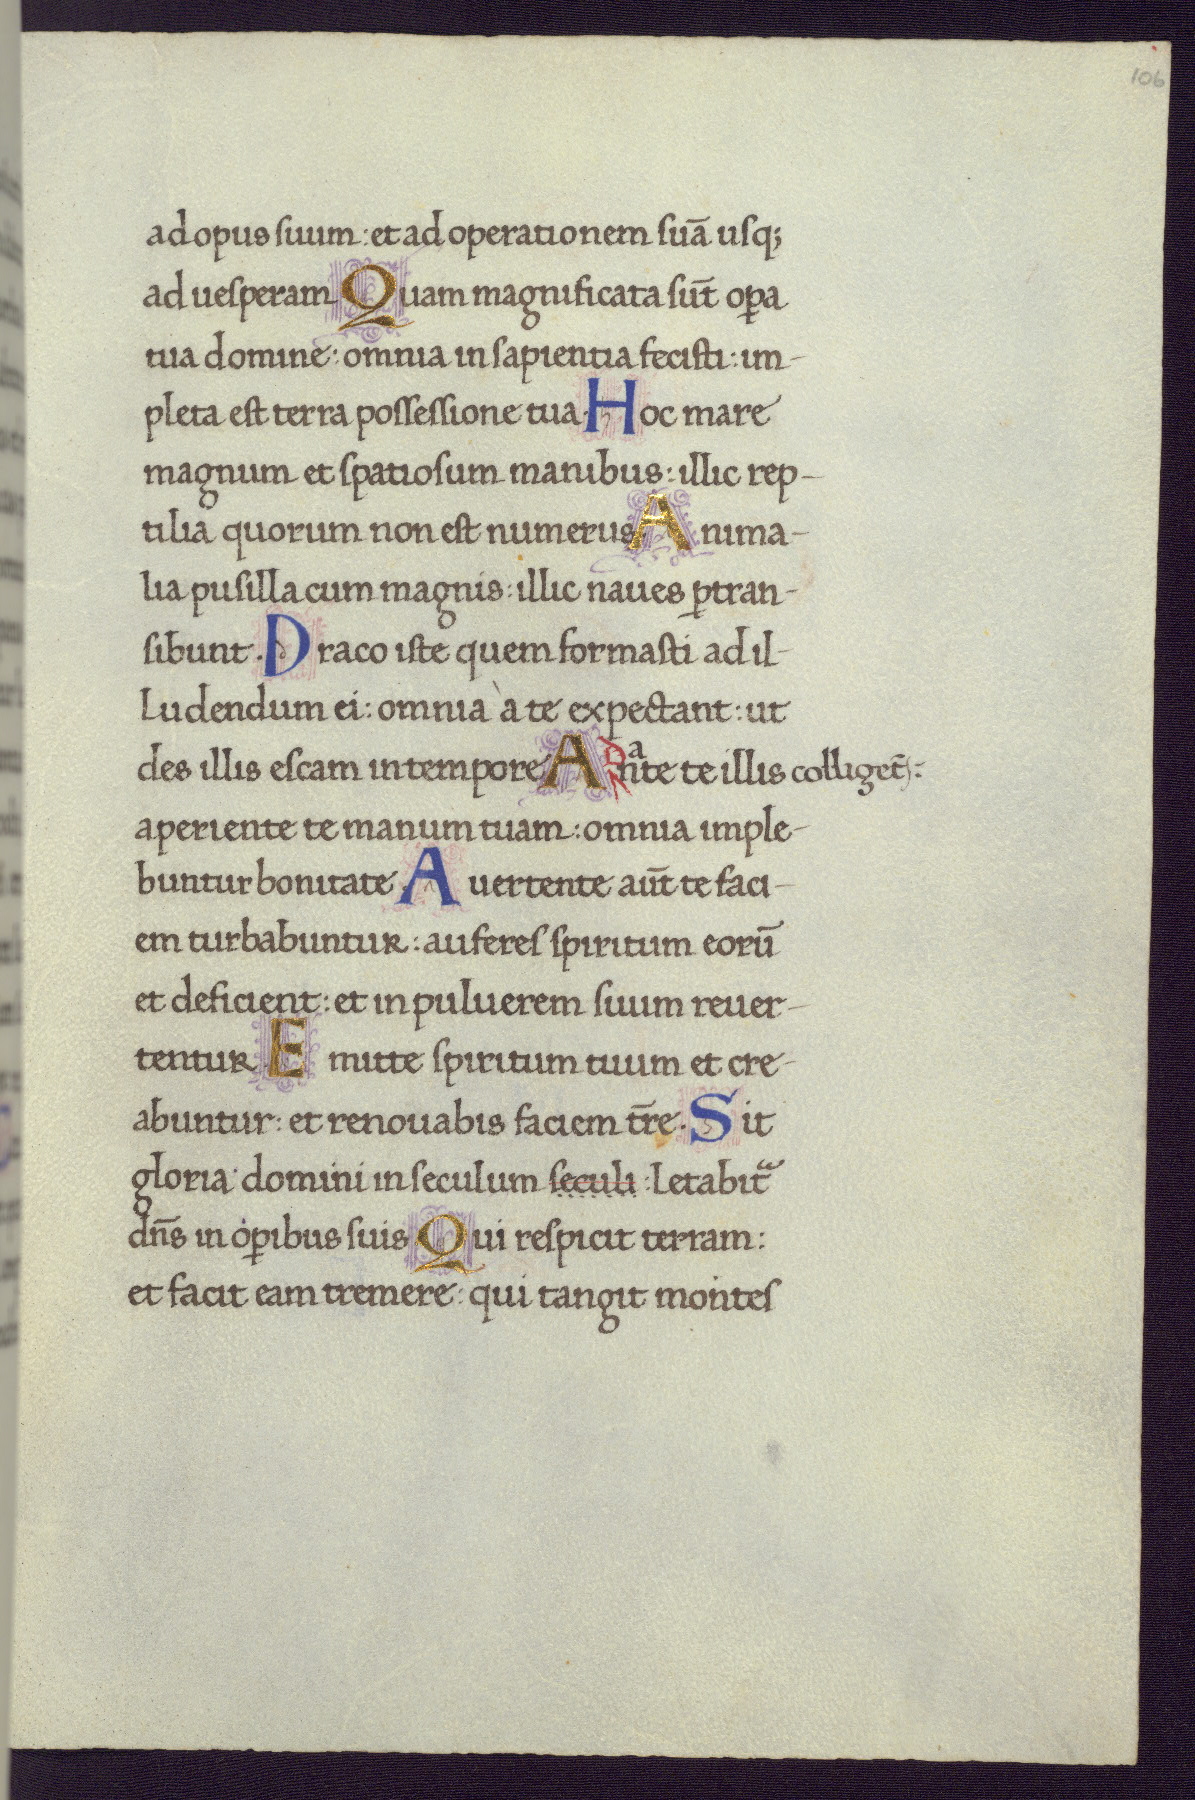 106
ad opus suum : et ad operationem suā usq;
ad uesperam Quam magnificata sūt oꝑa
tua domine : omnia in sapientia fecisti : im-
pleta est terra possessione tua. Hoc mare
magnum et spatiosum manibus : illic rep-
tilia quorum non est numerus. Anima-
lia pusilla cum magnis : illic naues ꝑtran-
sibunt. Draco iste quem formasti ad il-
ludendum ei : omnia à te expectant : ut
des illis escam in tempore A Dante te illis colliget̄ :
aperiente te manum tuam : omnia imple-
buntur bonitate. Auertente aūt te faci-
em turbabuntur : auferes spiritum eorū
et deficient : et in puluerem suum reuer-
tentur Emitte spiritum tuum et cre-
abuntur : et renouabis faciem t̄re. Sit
gloria domini in seculum seculi : letabit̄
dn̄s in oꝑibus suis Qui respicit terram :
et facit eam tremere : qui tangit montes